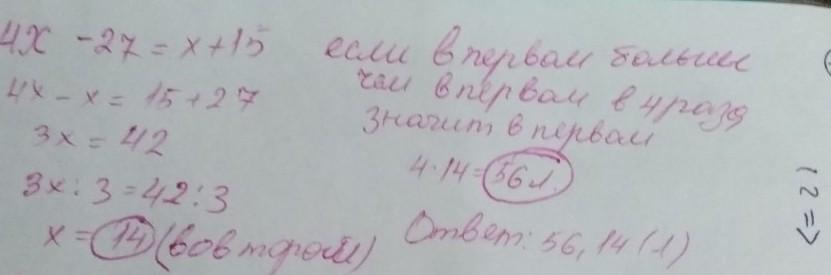 4x - 27 = x + 15
4x - x = 15 + 27
3x = 42
3x : 3 = 42 : 3
x = 14 (во втором)
если в первом больше
чем в первом в 4 раза
значит в первом
4 · 14 = 56 л.
Ответ: 56, 14 (л)
12 =>